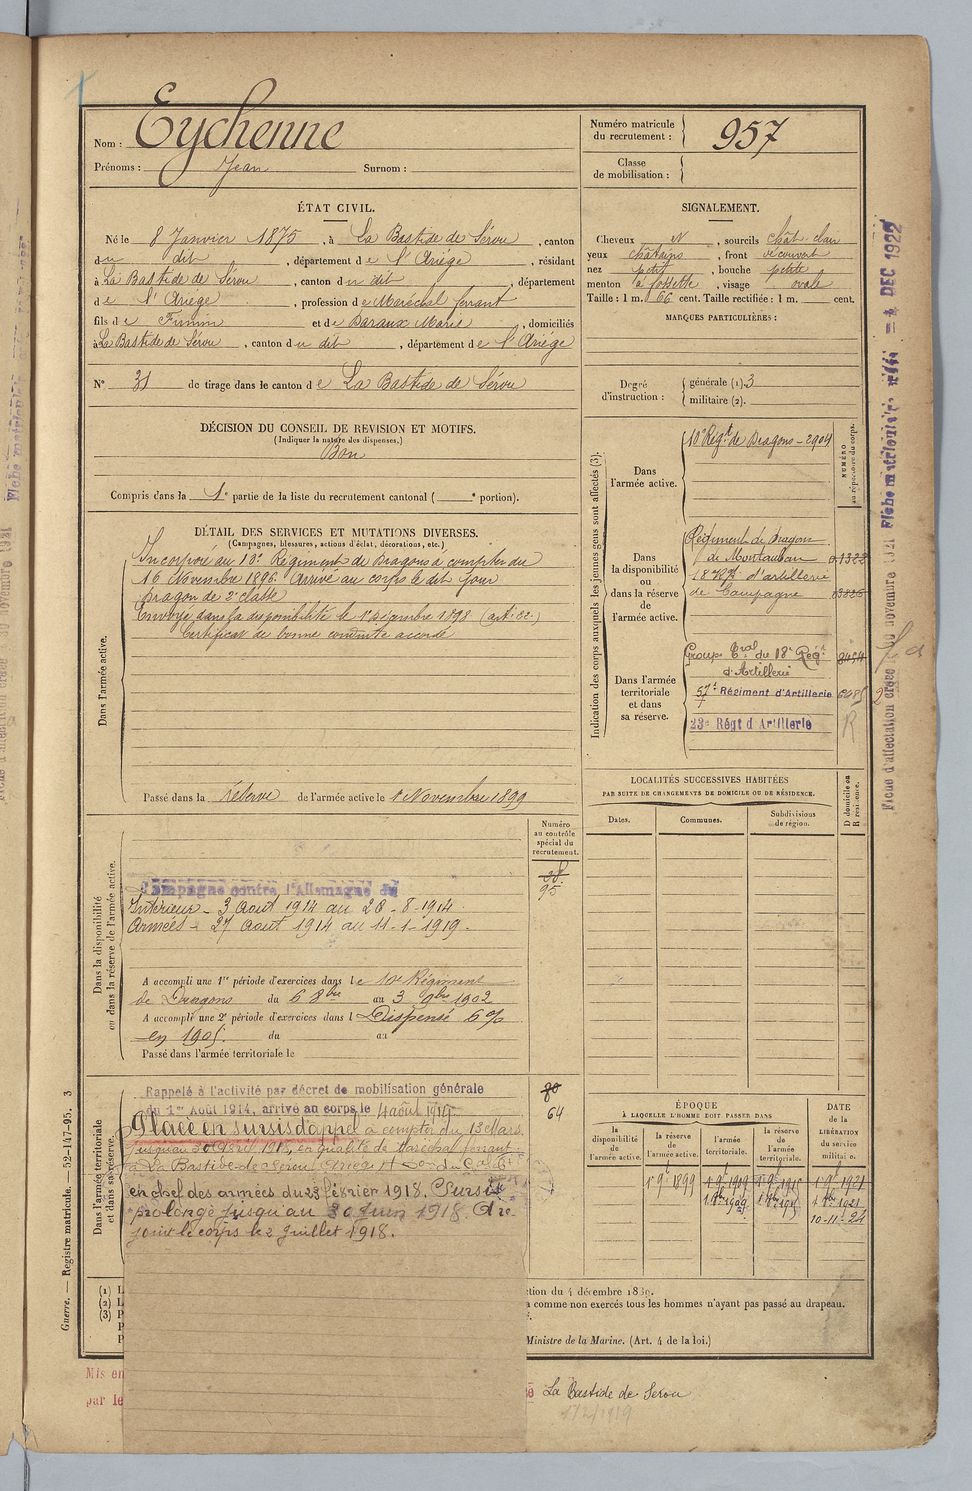 Nom : Eychenne
Prénoms : Jean Surnom :
Numéro matricule
du recrutement : 957
Classe
de mobilisation :
ÉTAT CIVIL.
Né le 8 Janvier 1875, à La Bastide de Sérou, canton
du dit, département de l'Ariège, résidant
à La Bastide de Sérou, canton du dit, département
de l'Ariège, profession de Maréchal ferrant
fils de Firmin et de Baraux Marie, domiciliés
à La Bastide de Sérou, canton du dit, département de l'Ariège
N° 31 de tirage dans le canton de La Bastide de Sérou
DÉCISION DU CONSEIL DE REVISION ET MOTIFS.
(Indiquer la nature des dispenses.)
Bon
Compris dans la 1e partie de la liste du recrutement cantonal ( e portion).
SIGNALEMENT.
Cheveux N, sourcils chât. clair
yeux châtains, front découvert
nez petit, bouche petite
menton à fossette, visage ovale
Taille : 1 m. 66 cent. Taille rectifiée : 1 m. cent.
MARQUES PARTICULIÈRES :
Degré
d'instruction :
générale (1). 3
militaire (2).
Indication des corps auxquels les jeunes gens sont affectés (3).
NUMÉRO
au répertoire du corps.
Dans
l'armée active.
10e Régt de Dragons - 2904
Dans
la disponibilité
ou
dans la réserve
de
l'armée active.
Régiment de dragons
de Montauban 1322
18e Rgt d'artillerie
de Campagne
Dans l'armée
territoriale
et dans
sa réserve.
Groupe Tral du 18e Régt
d'Artillerie
57e Régiment d'Artillerie
23e Régt d'Artillerie
R
DÉTAIL DES SERVICES ET MUTATIONS DIVERSES.
(Campagnes, blessures, actions d'éclat, décorations, etc.)
Dans l'armée active.
Incorporé au 10e Régiment de Dragons à compter du
16 Novembre 1896. Arrivé au corps le dit jour
Dragon de 2e classe
Envoyé dans la disponibilité le 1er décembre 1898
Certificat de bonne conduite accordé
Passé dans la réserve de l'armée active le 1 Novembre 1899
LOCALITÉS SUCCESSIVES HABITÉES
PAR SUITE DE CHANGEMENTS DE DOMICILE OU DE RÉSIDENCE.
D domicile ou
R résidence.
Dates.
Communes.
Subdivisions
de région.
Numéro
au contrôle
spécial du
recrutement.
95
Dans la disponibilité
ou dans la réserve de l'armée active.
Campagne contre l'Allemagne du
Intérieur - 3 Août 1914 au 26-8-1914.
Armées - 27 Août 1914 au 11-1-1919.
A accompli une 1re période d'exercices dans le 10e Régiment
de Dragons du 6 8bre au 3 9bre 1902
A accompli une 2e période d'exercices dans l Dispensé 6%
en 1905. du au
Passé dans l'armée territoriale le
Dans l'armée territoriale
et dans sa réserve.
Rappelé à l'activité par décret de mobilisation générale
du 1er Août 1914, arrivé au corps le 4 août 1914
80
64
Placé en sursis d'appel à compter du 13 Mars
jusqu'au 30 Avril 1918, en qualité de Maréchal ferrant
à La Bastide de Sérou (Ariège)
en chef des armées du 23 février 1918. Sursis
prolongé jusqu'au 30 Juin 1918. A re-
joint le corps le 2 Juillet 1918.
ÉPOQUE
À LAQUELLE L'HOMME DOIT PASSER DANS
DATE
de la
LIBÉRATION
du service
militaire.
la
disponibilité
de
l'armée active.
la réserve
de
l'armée active.
l'armée
territoriale.
la réserve
de
l'armée
territoriale.
1 9bre 1899
10-11-24
(1) L
(2) L
(3) P
tion du 4 décembre 1889.
a comme non exercés tous les hommes n'ayant pas passé au drapeau.
Ministre de la Marine. (Art. 4 de la loi.)
Guerre. — Registre matricule. — 52-147-95. 3
Mis en
par le
La Bastide de Serou
1/2/1919